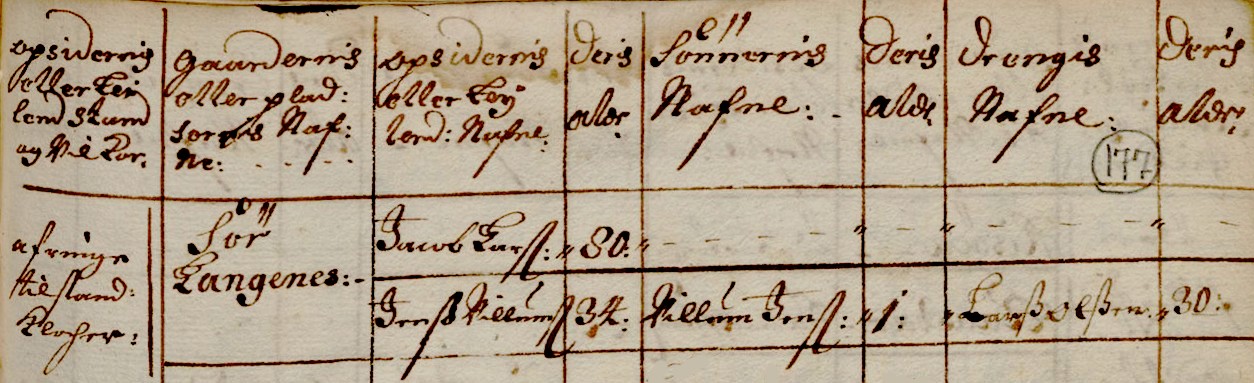 opsidernis
eller Lei
lend: stand
og Vil kor.
Gaardernis
eller plad:
sernis Naf:
ne:
opsidernis
eller Ley
lend: Nafne:
Deris
alder
Sönnernis
Nafne:
Deris
alder
Drengis
Nafne:
Deris
alder
177
afringe
tilstand:
Sör
Langenes:
Jacob Larsß:
80:
Jenß Villumß
34:
Villum Jenß:
1:
Larß Olßen.
30: